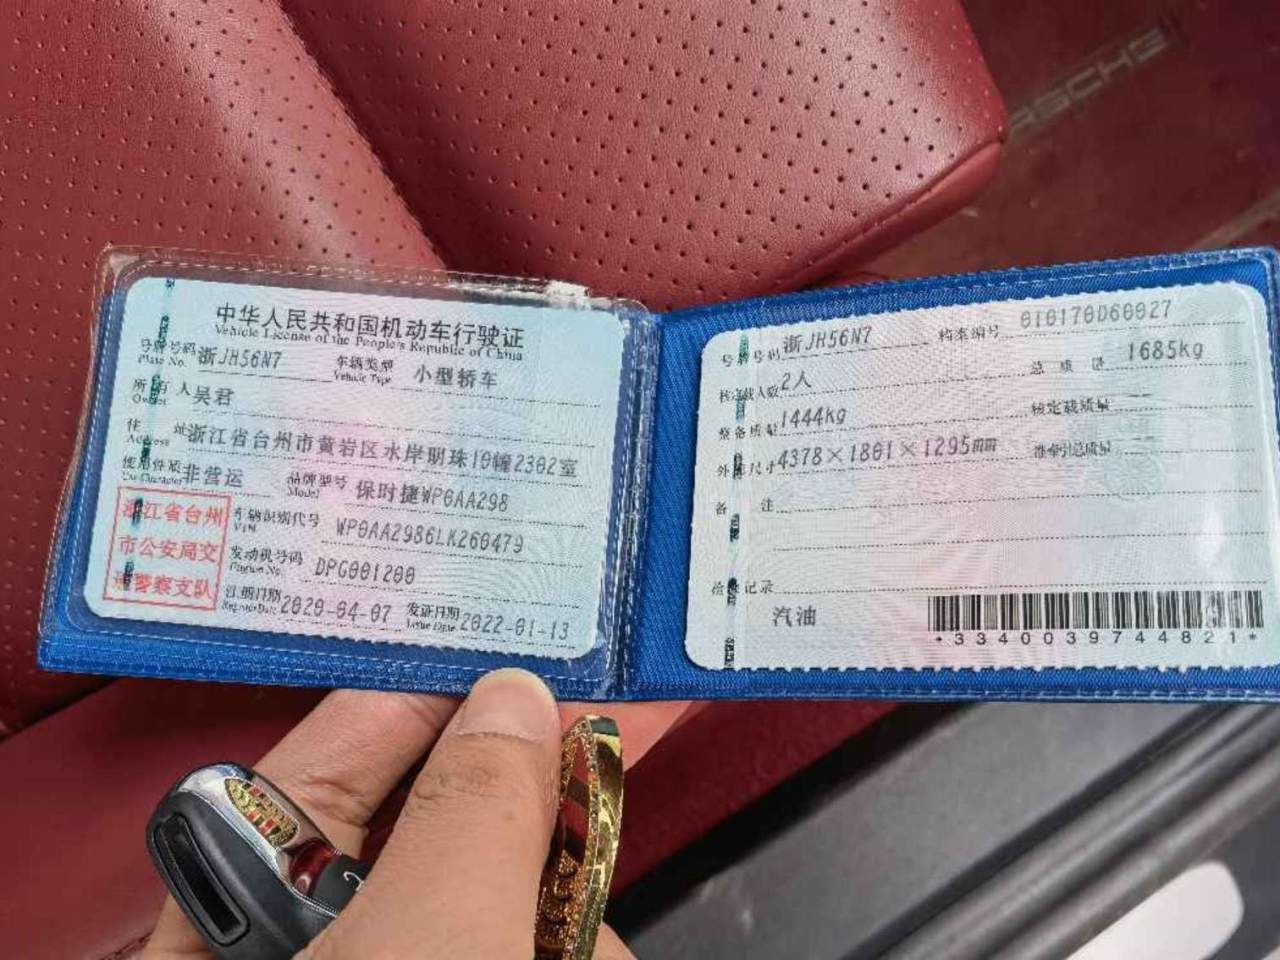 PORSCHE
中华人民共和国机动车行驶证
Vehicle License of the People's Republic of China
号牌号码 浙JH56N7 车辆类型 小型轿车
Plate No. Vehicle Type
所有人 吴君
Owner
住址 浙江省台州市黄岩区水岸明珠10幢2302室
Address
使用性质 非营运 品牌型号 保时捷WP0AA298
Use Character Model
浙江省台州
市公安局交
通警察支队
车辆识别代号 WP0AA2986LK260479
VIN
发动机号码 DPG001200
Engine No.
注册日期 2020-04-07 发证日期 2022-01-13
Register Date Issue Date
号牌号码 浙JH56N7 档案编号 010170D60027
核定载人数 2人 总质量 1685kg
整备质量 1444kg 核定载质量 --
外廓尺寸 4378×1801×1295mm 准牵引总质量 --
备注
检验记录
汽油
*3340039744821*